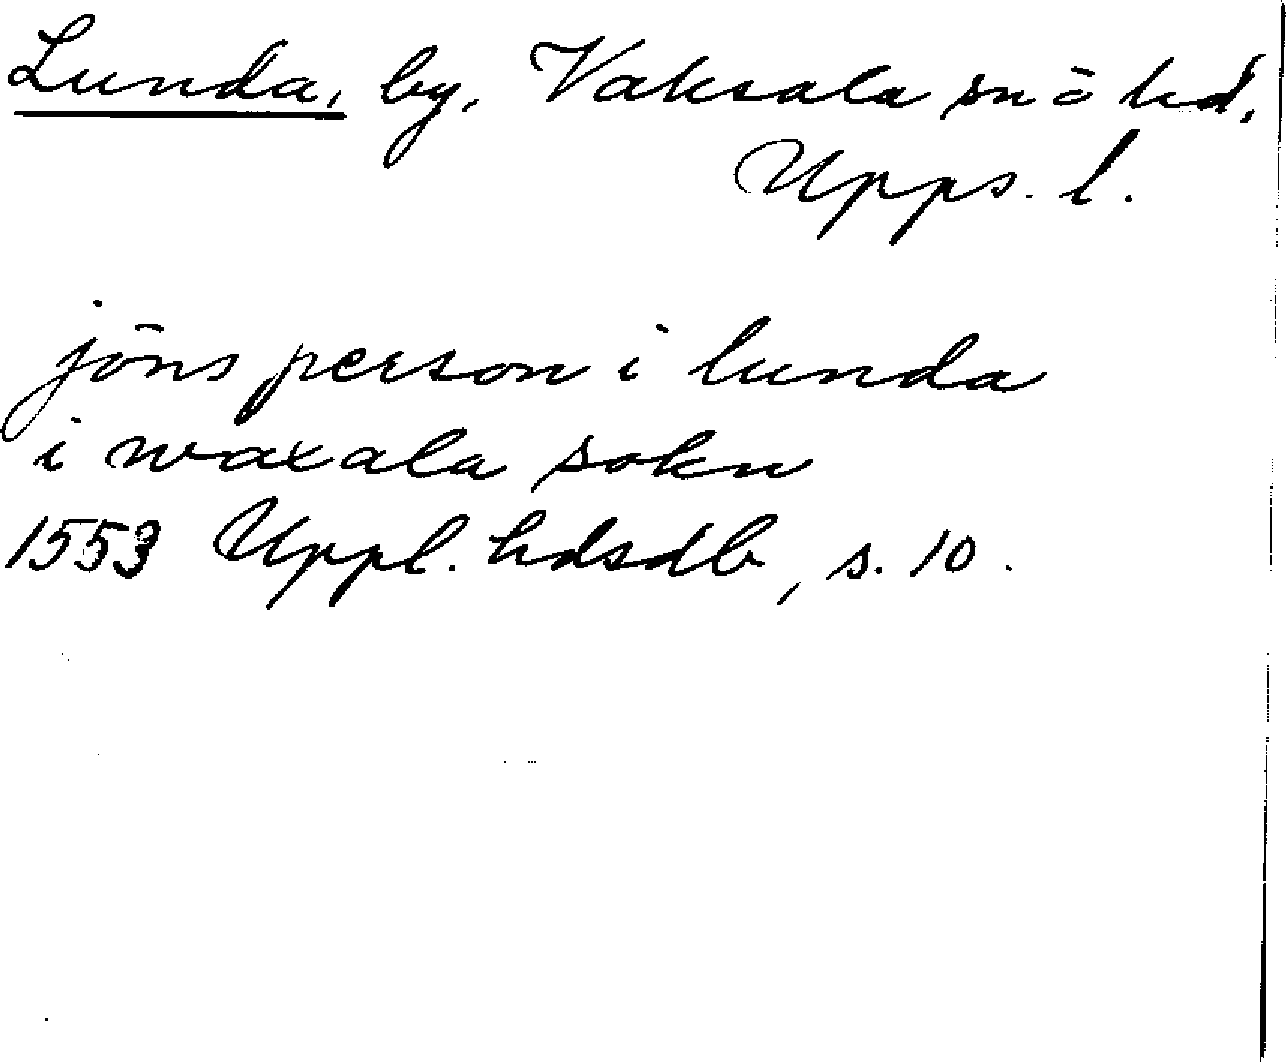 Lunda, by, Vaksala sn o hd,
Upps. l.
jöns person i lunda
i waxala sokn
1553 Uppl. hdsdb, s. 10.